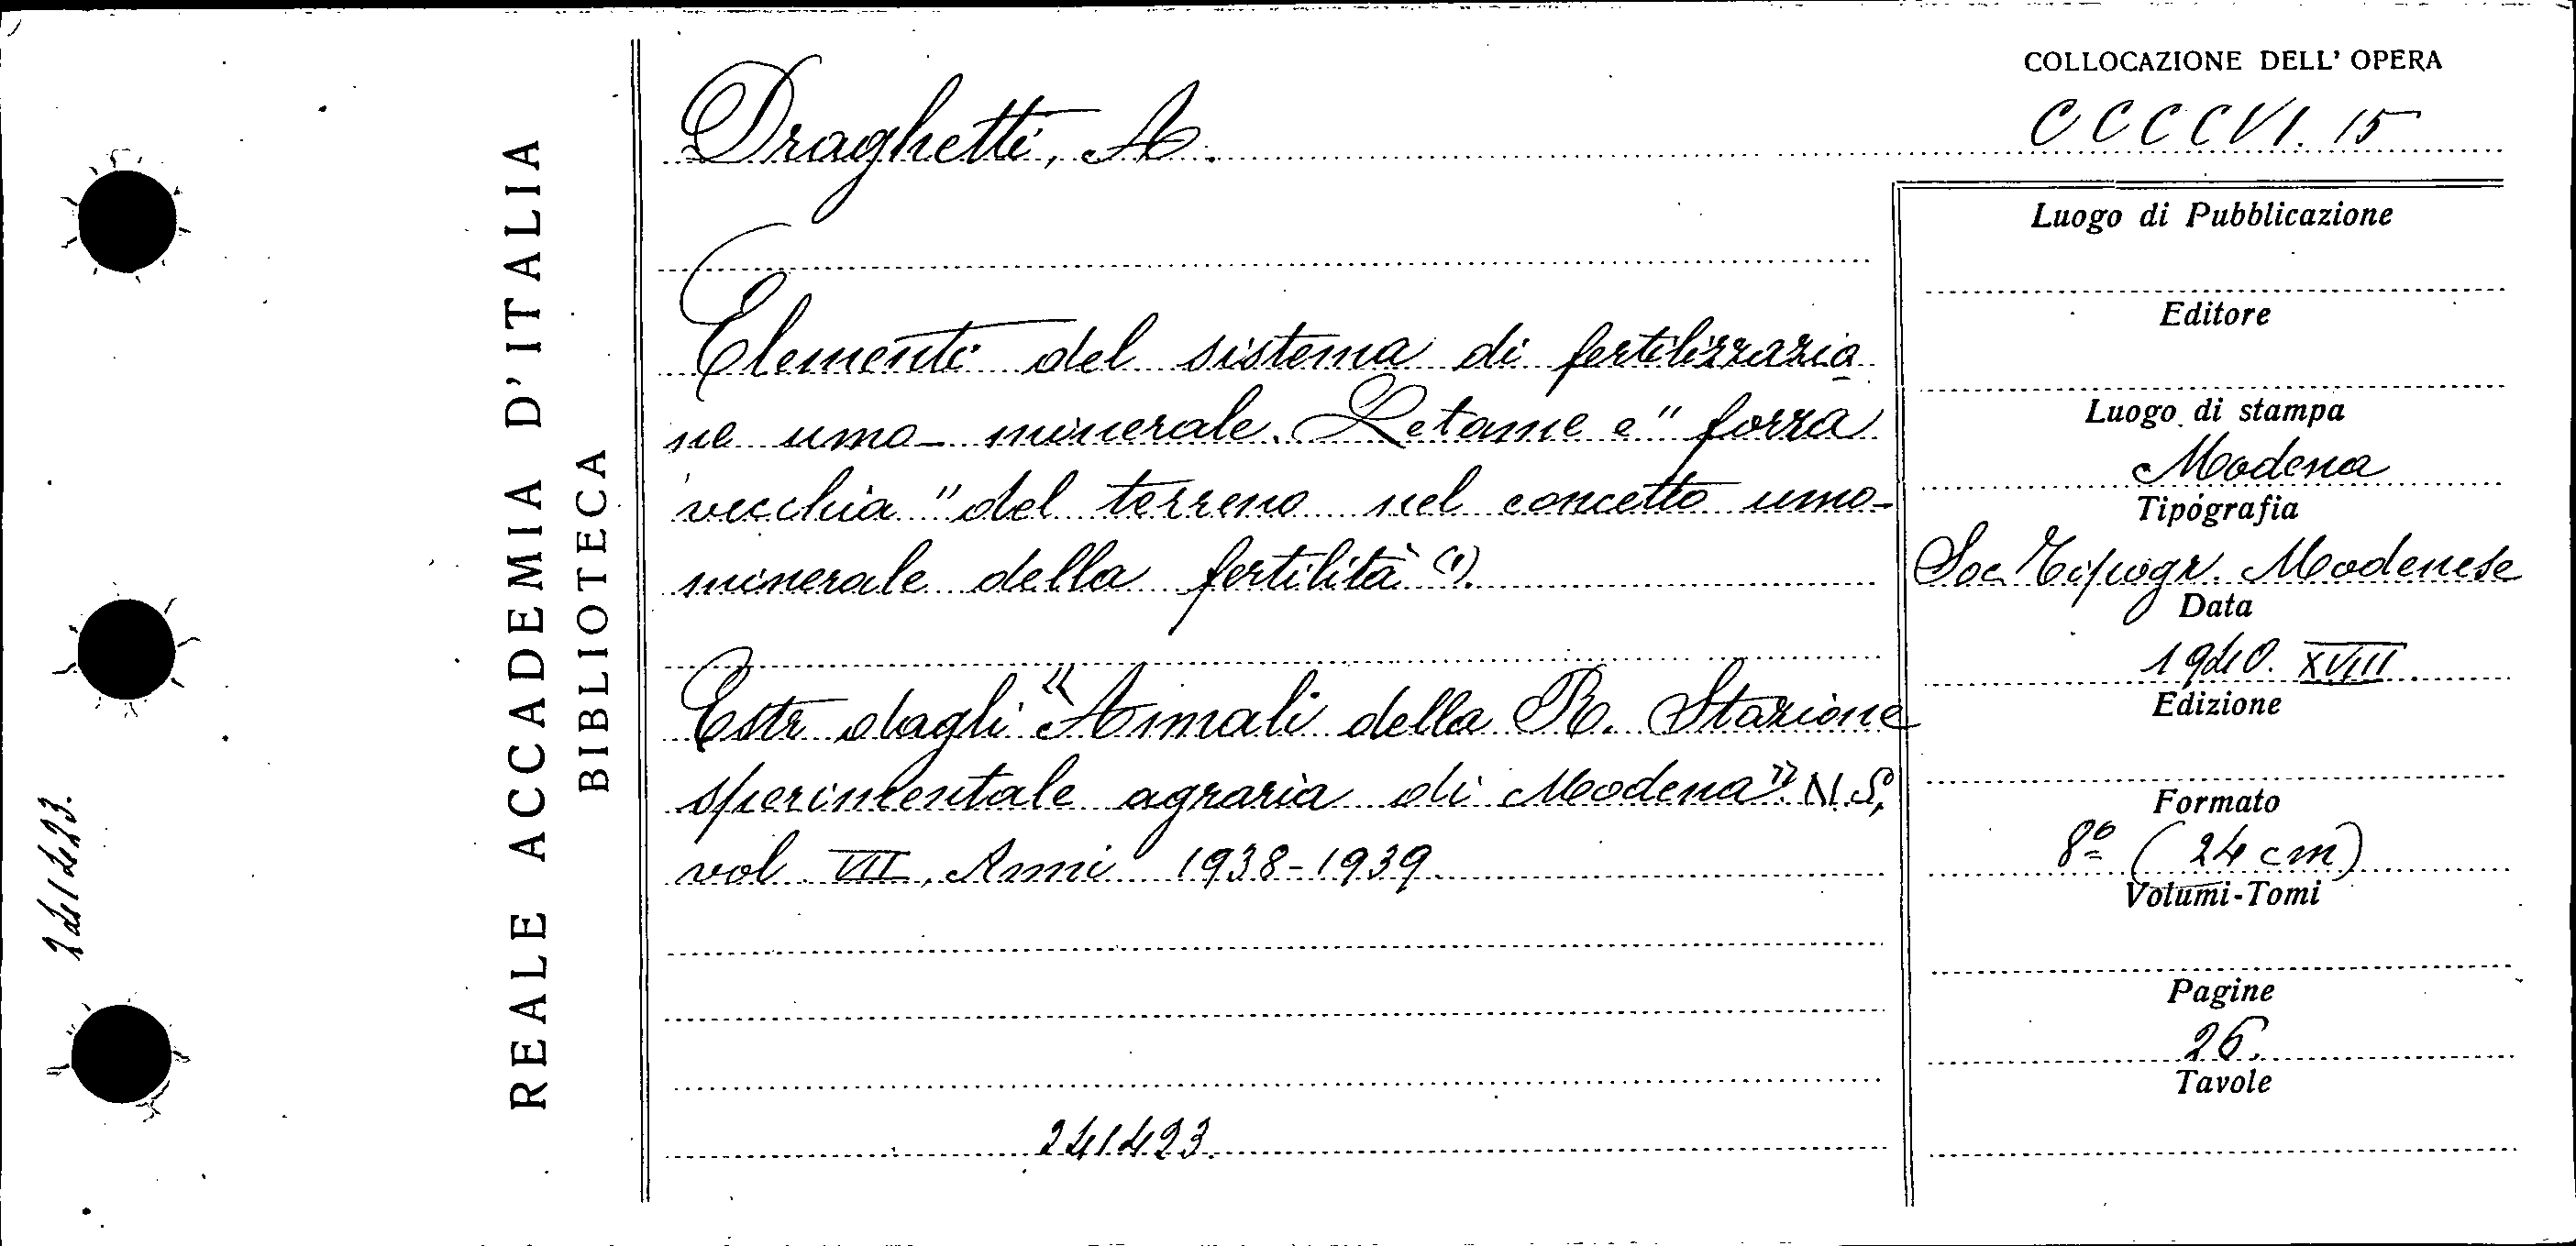 COLLOCAZIONE DELL' OPERA
CCCCVI. 15
Draghetti, A.
Elementi del sistema di fertilizzazio
ne umo-minerale. Letame e "forza
vecchia" del terreno nel concetto umo-
minerale della fertilità (1).
Estr. dagli "Annali della R. Stazione
sperimentale agraria di Modena". N.S.,
vol. VII, Anni 1938-1939.
241423.
Luogo di Pubblicazione
Editore
Luogo di stampa
Modena
Tipografia
Soc. Tipogr. Modenese
Data
1940. XVIII.
Edizione
Formato
8º (24 cm)
Volumi-Tomi
Pagine
26.
Tavole
REALE ACCADEMIA D'ITALIA
BIBLIOTECA
241423.